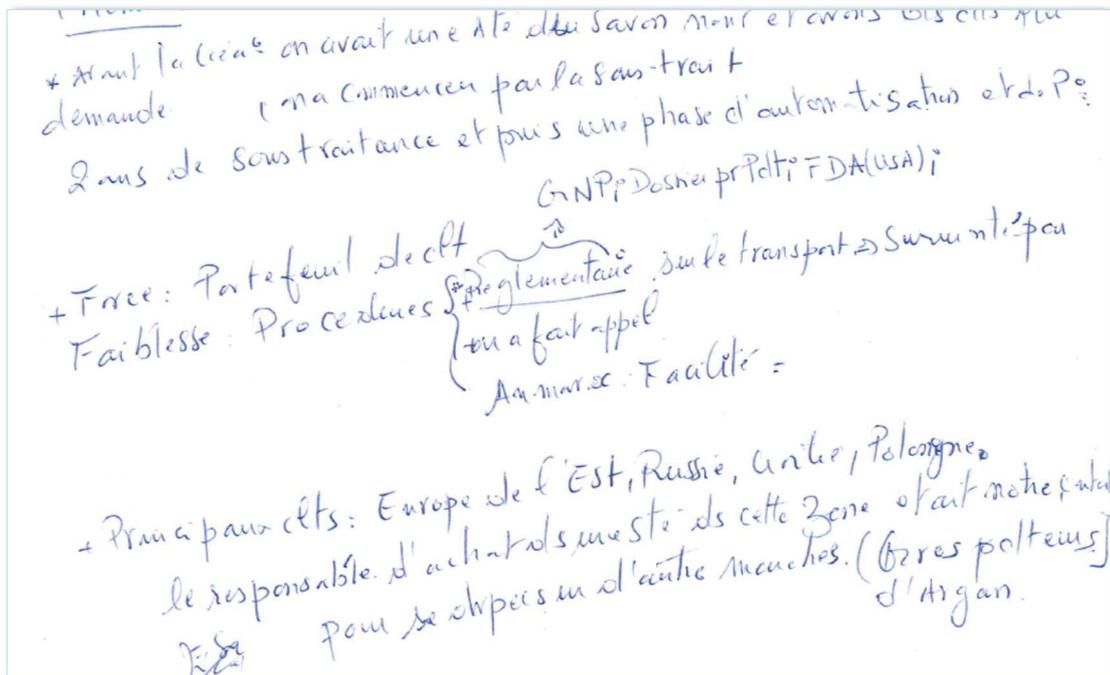 * Avant la Créa° on avait une Sté du Savon noir et avons
demande on a commencer par la sous-trait
2 ans de sous traitance et puis une phase d'automatisation et de P°
GNP; Dossier pr Pdt; FDA(USA);
+ Force: Portefeuil de clt
Faiblesse: Procedures Reglementaire sur le transport → Surmonté par
on a fait appel
Au maroc: Facilité =
+ Principaux clts: Europe de l'Est, Russie, Polongne.
le responsable d'achat ds une sté ds cette Zone était notre
pour se d'autre marches.
d'Argan.